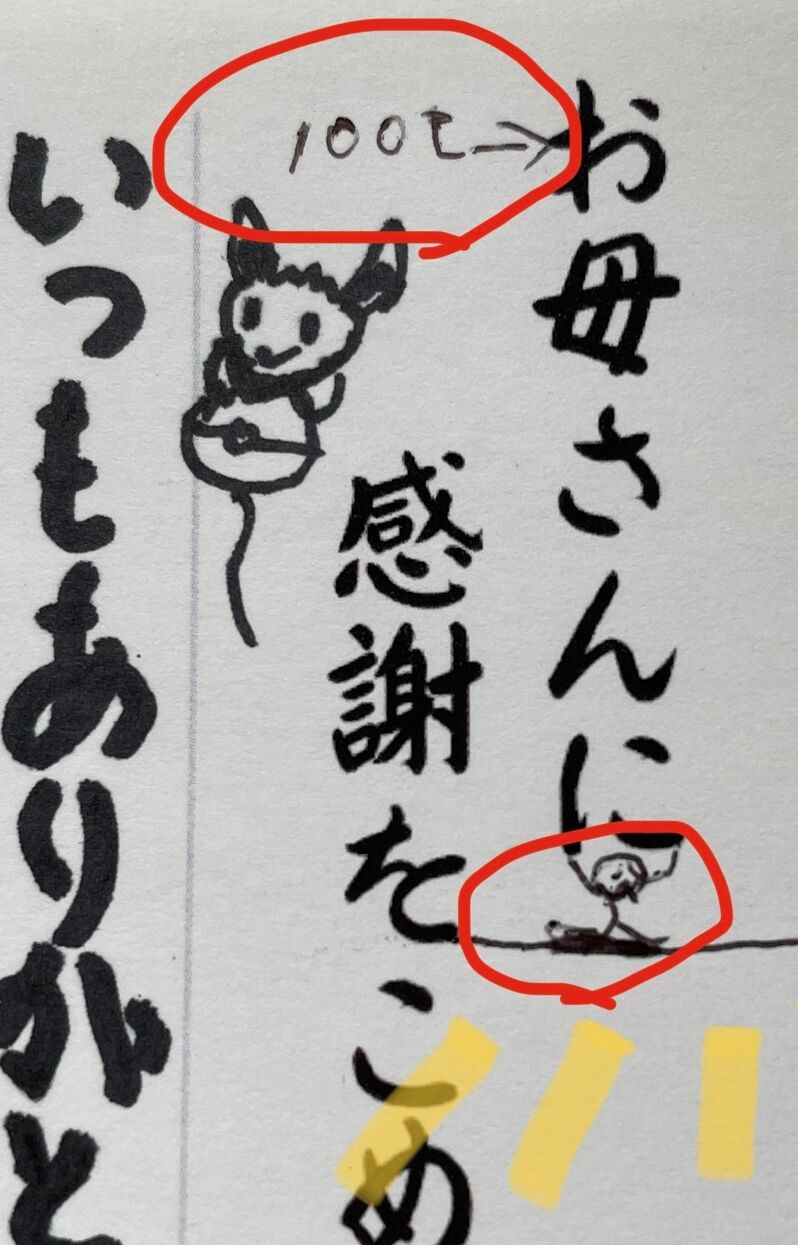 100t→
お母さんに
感謝をこめ
いつもありがと